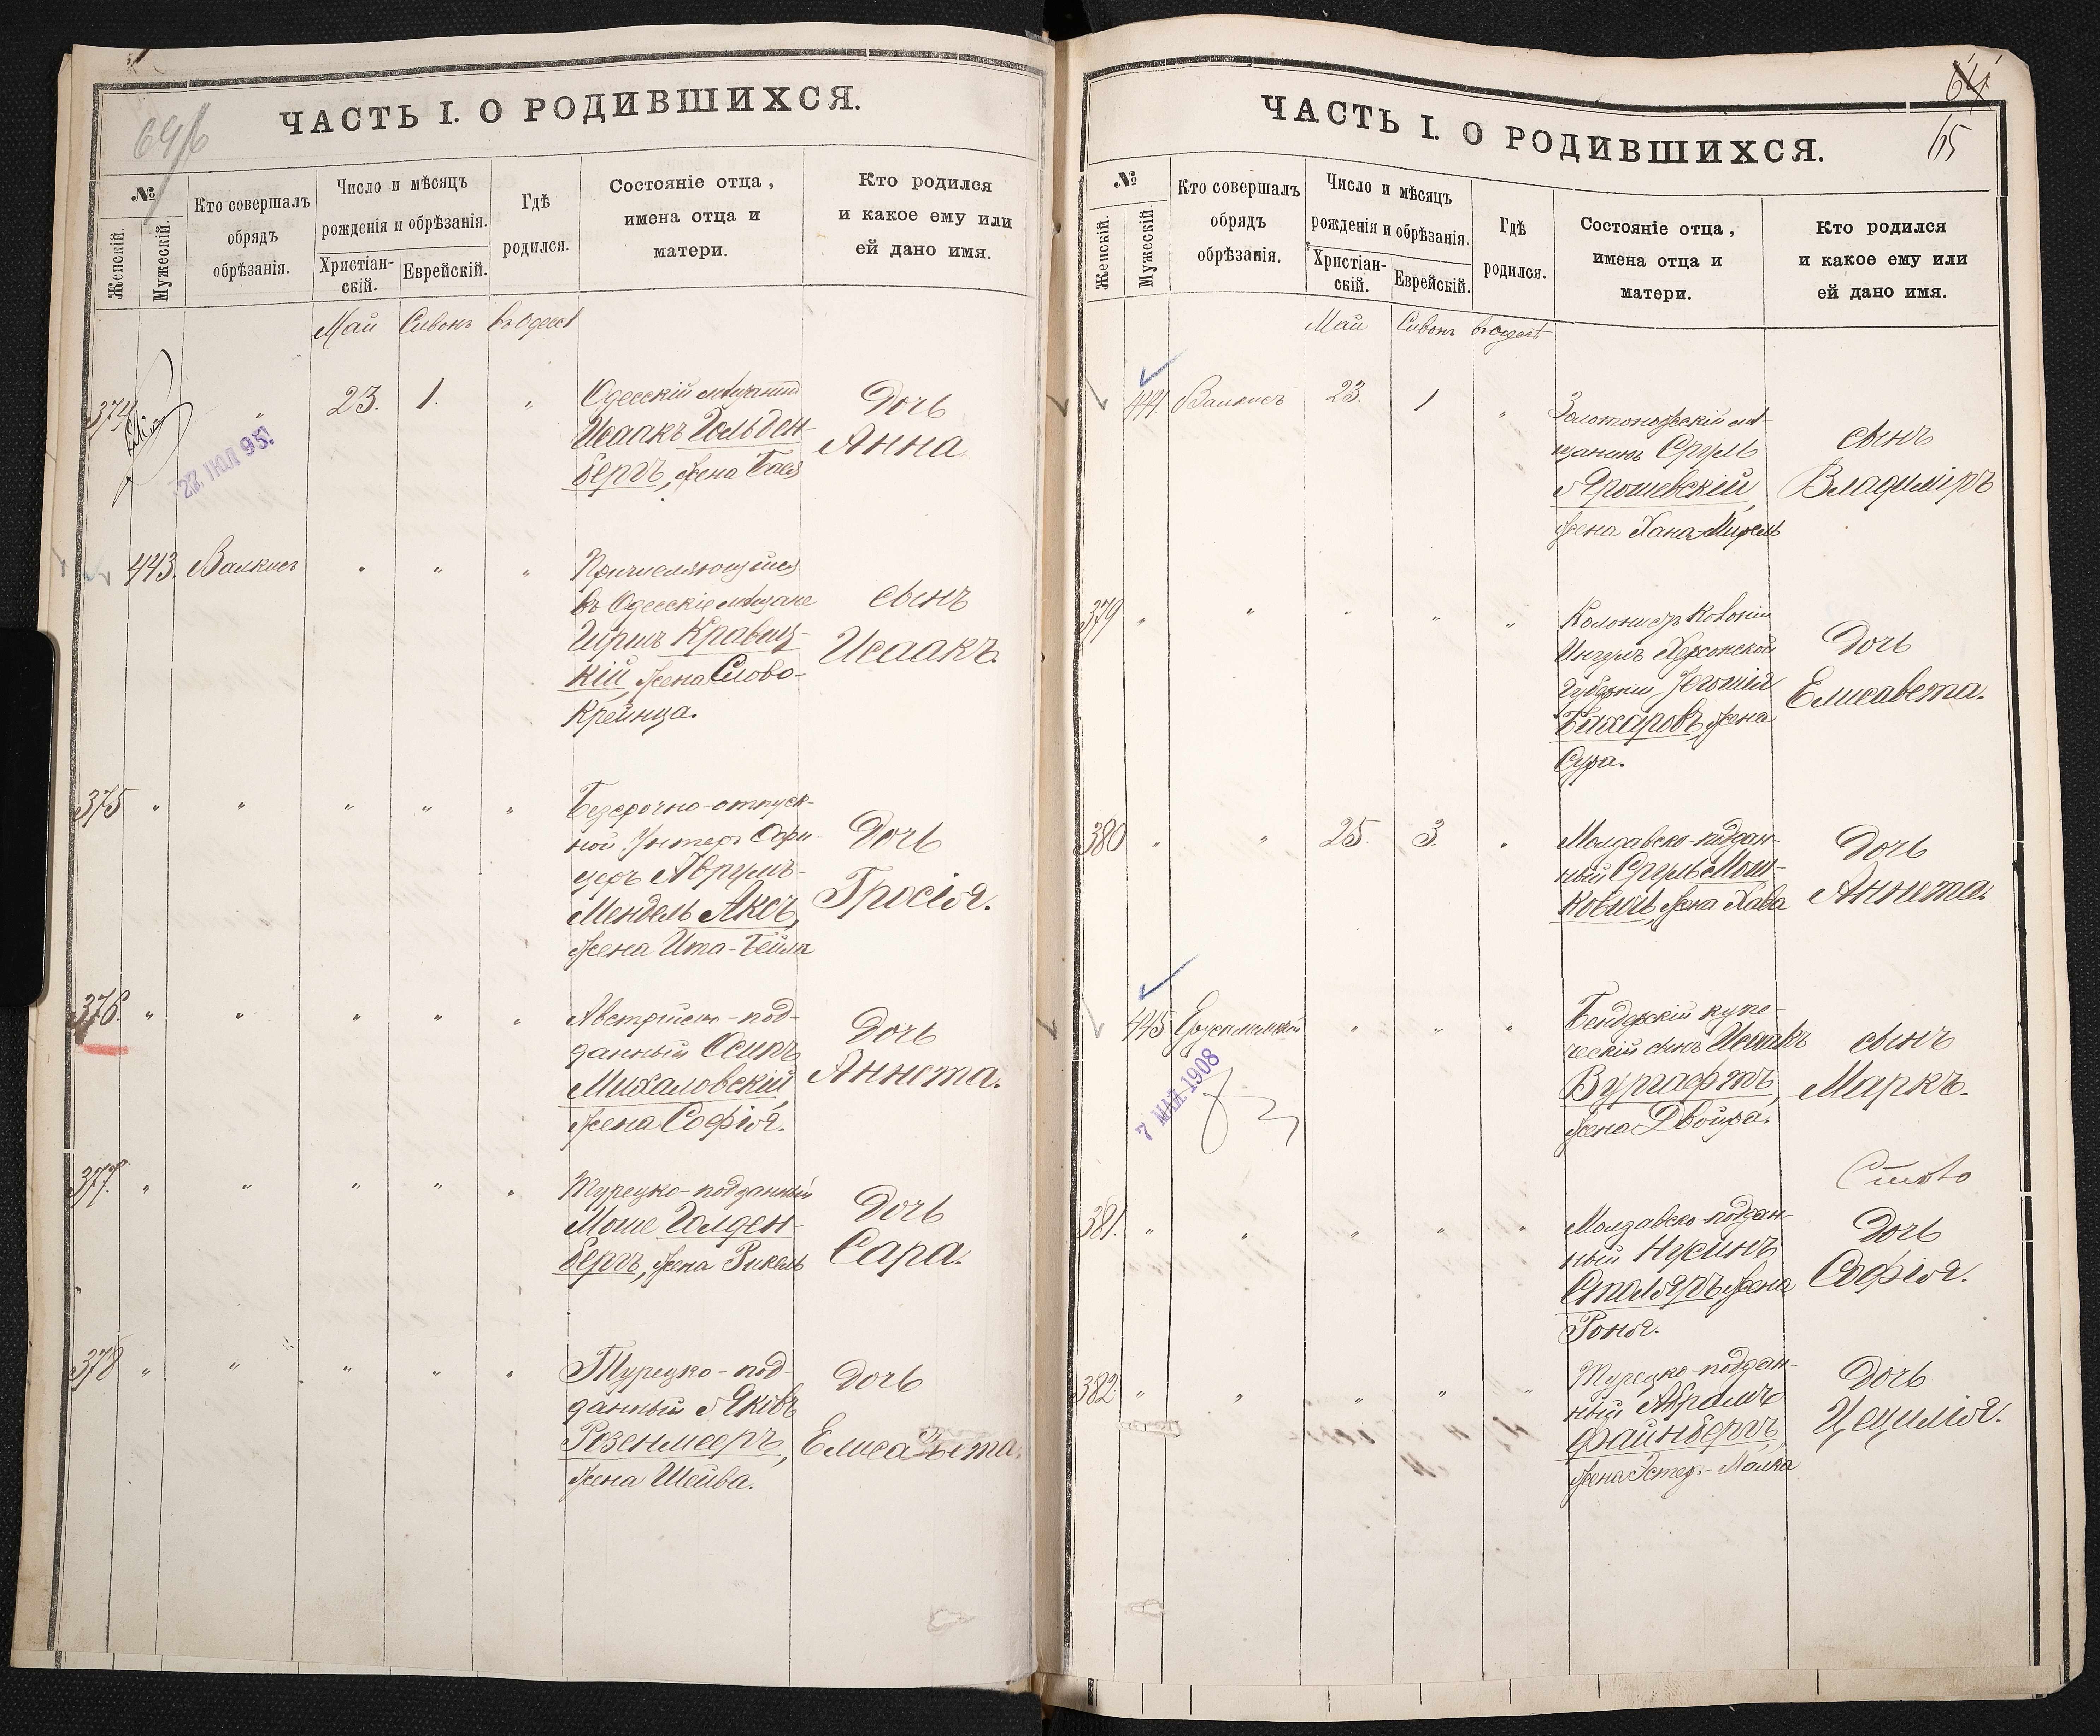 ЧАСТЬ I. О РОДИВШИХСЯ.
№
Женскій.
Мужескій.
Кто совершалъ
обрядъ
обрѣзанія.
Число и мѣсяцъ
рожденія и обрѣзанія.
Христіан-
скій.
Еврейскій.
Гдѣ
родился.
Состояніе отца,
имена отца и
матери.
Кто родился
и какое ему или
ей дано имя.
Май Сивонъ въ Одессѣ
374 " 23. 1. "
Одесскій мѣщанинъ
Исаакъ Гольден-
бергъ, жена Бася
Дочь
Анна
27. ІЮЛ 95
443. Валкисъ " " "
Причисляющійся
въ Одесскіе мѣщане
Гиршъ Кравиц-
кій, жена Слово-
Крейнца.
сынъ
Исаакъ.
375 " " " " "
Безсрочно-отпуск-
ной Унтеръ Офи-
церъ Аврумъ-
Мендель Аксъ,
жена Ита-Бейла
Дочь
Гросія.
376. " " " " "
Австрійско-под-
данный Осипъ
Михаловскій,
жена Софія.
Дочь
Аннета.
377. " " " " "
Турецко-подданный
Моше Голден-
бергъ, жена Рикель
Дочь
Сара.
378 " " " " "
Турецко-под-
данный Яковъ
Розенмееръ,
жена Шейва.
Дочь
Елисавета.
64
65
ЧАСТЬ I. О РОДИВШИХСЯ.
№
Женскій.
Мужескій.
Кто совершалъ
обрядъ
обрѣзанія.
Число и мѣсяцъ
рожденія и обрѣзанія.
Христіан-
скій.
Еврейскій.
Гдѣ
родился.
Состояніе отца,
имена отца и
матери.
Кто родился
и какое ему или
ей дано имя.
Май Сивонъ въ Одессѣ
444. Валкисъ 23. 1 "
Золотоношскій мѣ-
щанинъ Сруль
Ярошевскій,
жена Хана-Мирель
сынъ
Владиміръ
379 " " " " "
Колонистъ Колоніи
Ингулъ Херсонской
Губерніи
Бахаровъ, жена
Сура.
Дочь
Елисавета.
380. " " 25. 3. "
Молдавско-поддан-
ный Сруль Мош-
ковичъ, жена Хава
Дочь
Аннета.
445 " " "
7 МАЙ. 1908
Бендерскій купе-
ческій сынъ Исаакъ
Вургафтъ,
жена Двойра.
сынъ
Маркъ.
381. " " " " "
Молдавско-поддан-
ный Нусинъ
Столяръ, жена
Роня.
Дочь
Софія.
382. " " " " "
Турецко-поддан-
ный Абрамъ
Файнбергъ,
жена Эстеръ-Малка
Дочь
Цецилія.